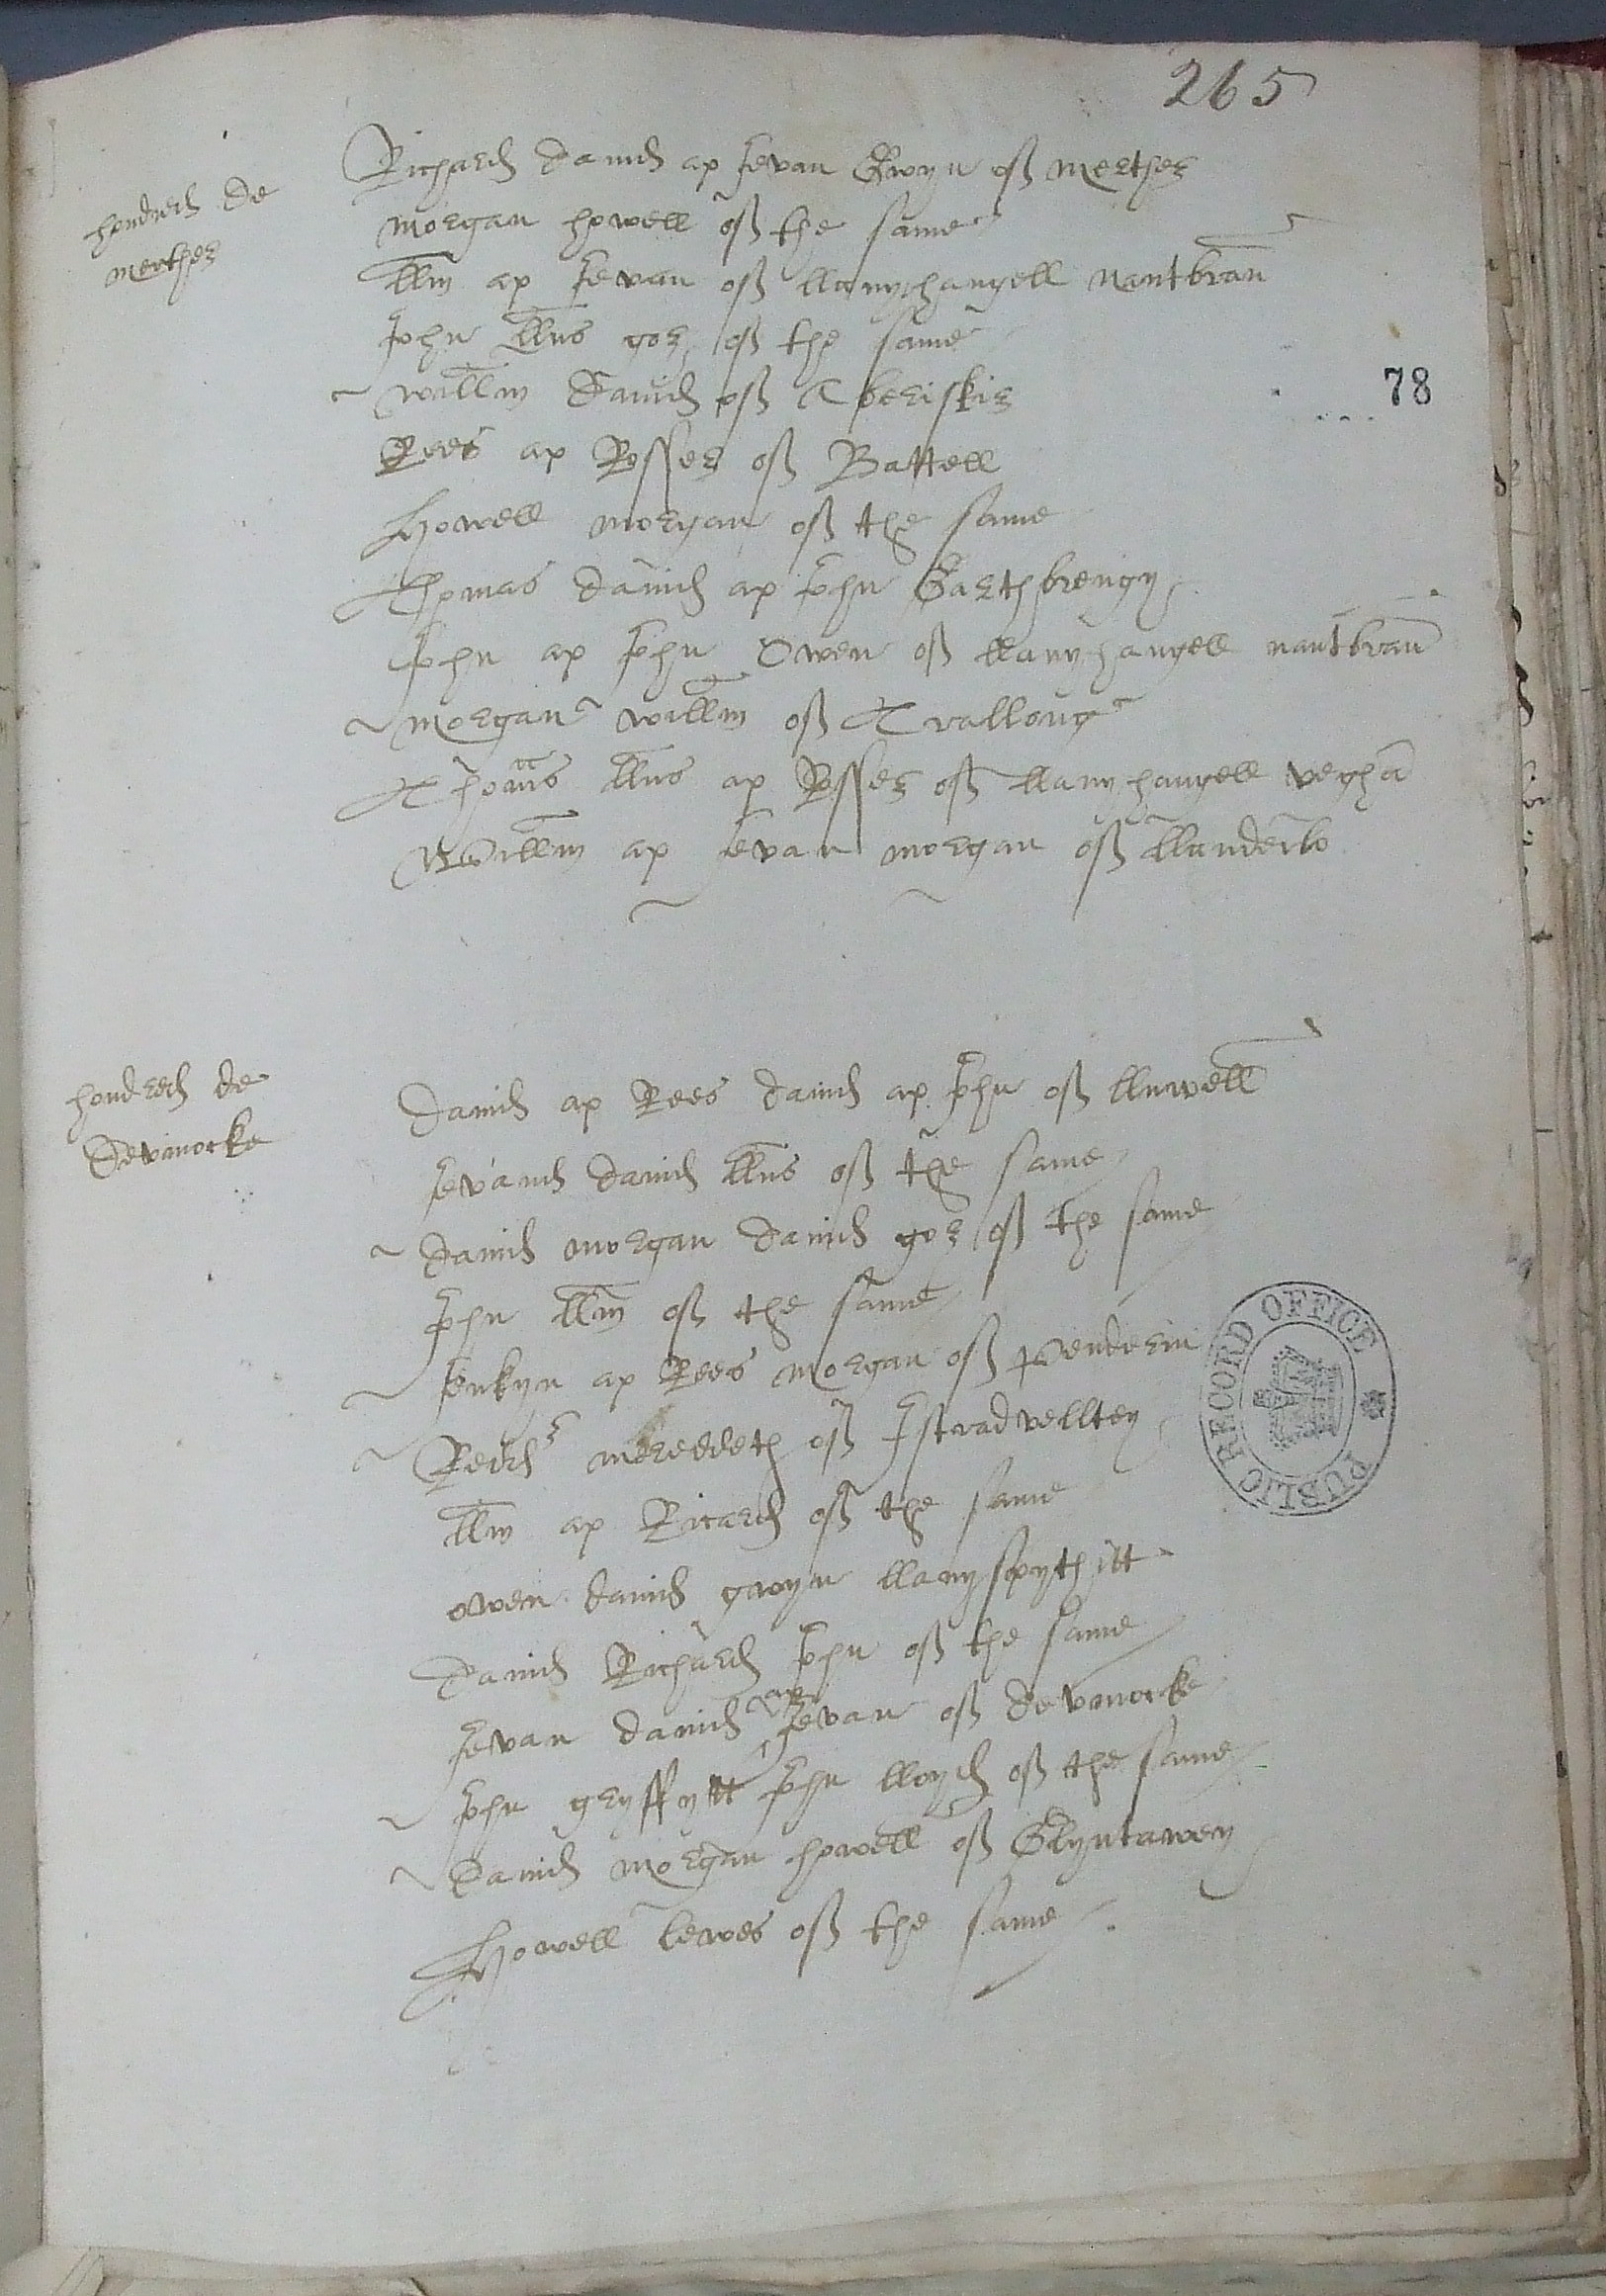 265
hondred de
merther
Richard david ap Jevan Gwyn off merther
morgan howell off the same
llm ap Jevan off llanyhangell nantbran
John llns goz off the same
willm david off Aberiskir
78
Rees ap Rosser off Battell
Howell morgan off the same
Thomas david ap John Garthbrengy
John ap John Owen off llanyhangell nantbran
morgan willm off Trallong
Thomas llns ap Rosser off llanyhangell vechā
Willm ap Jevan morgan off llanderlo
hondred de
Devanocke
David ap Rees david ap John off lluwell
Jevan david llns off the same
david morgan david gor off the same
John llm off the same
Jenkyn ap Rees morgan off penderin
Redd meredeth off Istradvelltey
llm ap Ricard off the same
owen david gwyn llanyspythitt
David Richard John off the same
Jevan david ap Jevan off devanocke
John gryffytt John lloyd off the same
David morgan howell off Glyntawey
Howell lewes off the same
PUBLIC RECORD OFFICE